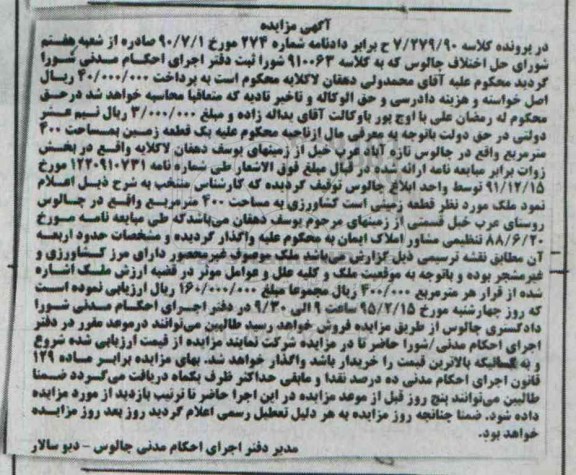 آگهی مزایده
در پرونده کلاسه ۷/۲۷۹/۹۰ ح برابر دادنامه شماره ۲۷۴ مورخ ۹۰/۷/۱ صادره از شعبه هفتم
شورای حل اختلاف چالوس که به کلاسه ۹۱۰۰۶۳ شورا ثبت دفتر اجرای احکام مدنی شورا
گردید محکوم علیه آقای محمدولی دهقان لاکلایه محکوم است به پرداخت ۴۰/۰۰۰/۰۰۰ ریال
اصل خواسته و هزینه دادرسی و حق الوکاله و تاخیر تادیه که متعاقبا محاسبه خواهد شد در حق
محکوم له رمضان علی با اوج پور باوکالت آقای یداله زاده و مبلغ ۳/۰۰۰/۰۰۰ ریال نیم عشر
دولتی در حق دولت باتوجه به معرفی مال ازناحیه محکوم علیه یک قطعه زمین بمساحت ۴۰۰
مترمربع واقع در چالوس تازه آباد عرب خیل از زمینهای یوسف دهقان لاکلایه واقع در بخش
زوات برابر مبایعه نامه ارائه شده در قبال مبلغ فوق الاشعار طی شماره نامه ۱۲۲۰۹۱۰۷۳۱ مورخ
۹۱/۱۲/۱۵ توسط واحد ابلاغ چالوس توقیف گردیده که کارشناس منتخب به شرح ذیل اعلام
نمود ملک مورد نظر قطعه زمینی است کشاورزی به مساحت ۴۰۰ مترمربع واقع در چالوس
روستای عرب خیل قسمتی از زمینهای مرحوم یوسف دهقان می‌باشدکه طی مبایعه نامه مورخ
۸۸/۶/۲۰ تنظیمی مشاور املاک ایمان به محکوم علیه واگذار گردیده و مشخصات حدود اربعه
آن مطابق نقشه ترسیمی ذیل گزارش می‌باشد ملک موصوف غیرمحصور دارای مرز کشاورزی و
غیرمشجر بوده و باتوجه به موقعیت ملک و کلیه علل و عوامل موثر در قضیه ارزش ملک اشاره
شده از قرار هر مترمربع ۴۰۰/۰۰۰ ریال مجموعا مبلغ ۱۶۰/۰۰۰/۰۰۰ ریال ارزیابی نموده است
که روز چهارشنبه مورخ ۹۵/۲/۱۵ ساعت ۹ الی ۹/۳۰ در دفتر اجرای احکام مدنی شورا
دادگستری چالوس از طریق مزایده فروش خواهد رسید طالبین می‌توانند درموعد مقرر در دفتر
اجرای احکام مدنی/شورا حاضر تا در مزایده شرکت نمایند مزایده از قیمت ارزیابی شده شروع
و به کسانیکه بالاترین قیمت را خریدار باشد واگذار خواهد شد. بهای مزایده برابر ماده ۱۲۹
قانون اجرای احکام مدنی ده درصد نقدا و مابقی حداکثر ظرف یکماه دریافت می‌گردد ضمنا
طالبین می‌توانند پنج روز قبل از موعد مزایده در این اجرا حاضر تا ترتیب بازدید از مورد مزایده
داده شود. ضمنا چنانچه روز مزایده به هر دلیل تعطیل رسمی اعلام گردید روز بعد روز مزایده
خواهد بود.
مدیر دفتر اجرای احکام مدنی چالوس - دیو سالار